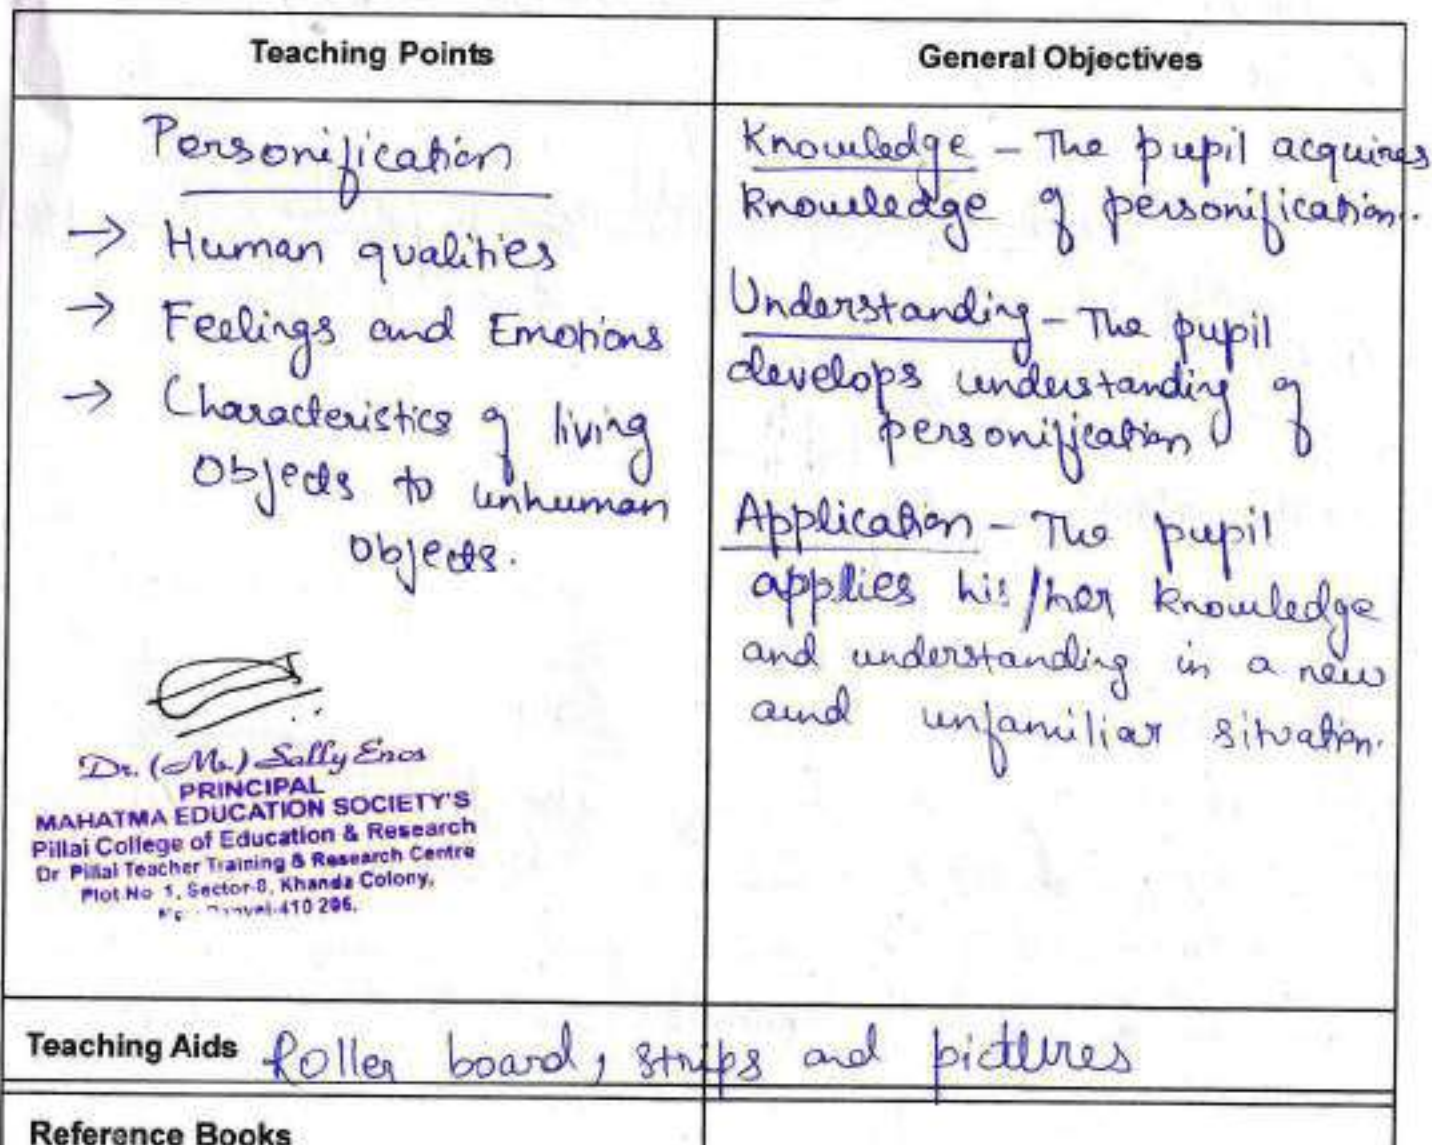 Teaching Points
Personification
→ Human qualities
→ Feelings and Emotions
→ Characteristics of living
objects to unhuman
objects.
Dr. (Mrs.) Sally Enos
PRINCIPAL
MAHATMA EDUCATION SOCIETY'S
Pillai College of Education & Research
Dr Pillai Teacher Training & Research Centre
Plot No 1, Sector-8, Khanda Colony,
410 206.
General Objectives
Knowledge - The pupil acquires
knowledge of personification.
Understanding - The pupil
develops understanding of
personification
Application - The pupil
applies his/her knowledge
and understanding in a new
and unfamiliar situation.
Teaching Aids Roller board, strips and pictures
Reference Books